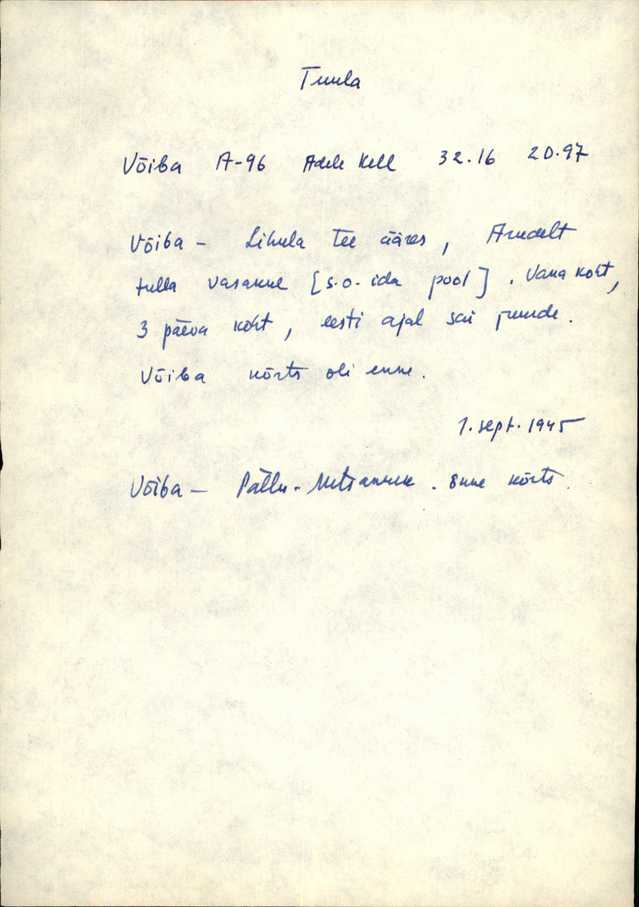 Tuula
Võiba A-96 Adele Kell 32.16 20.97
Võiba - Lihula tee ääres, Arudelt
tulla vasakul [s.o. ida pool]. Vana koht,
3 päeva koht, eesti ajal sai juurde.
Võiba kõrts oli enne.
1. sept. 1945
Võiba - Põllu- . Enne kõrts.